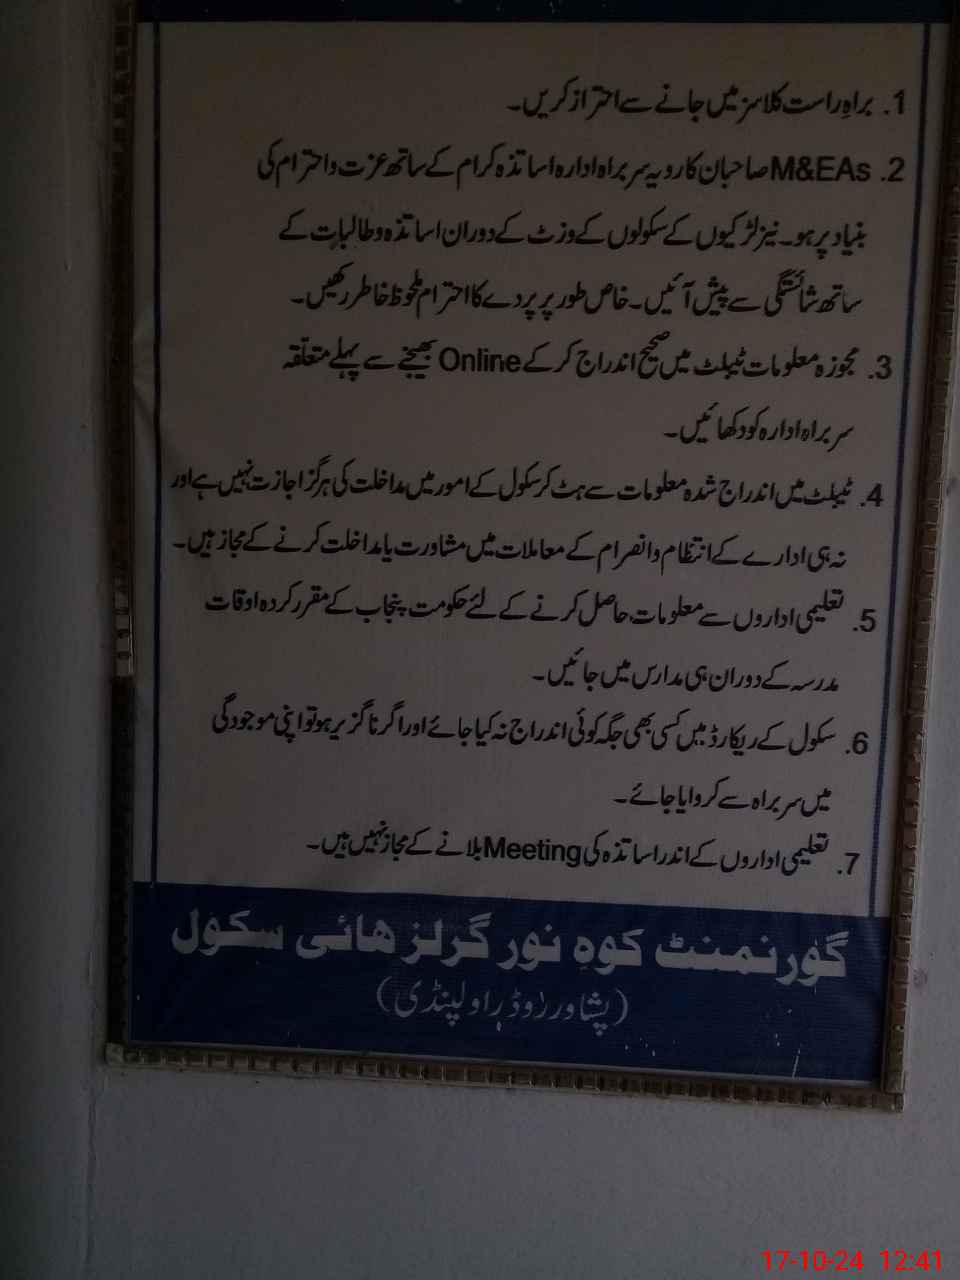 1. براہِ راست کلاسز میں جانے سے احتراز کریں۔
2. M&EAs صاحبان کا رویہ سربراہ ادارہ اساتذہ کرام کے ساتھ عزت و احترام کی
بنیاد پر ہو۔ نیز لڑکیوں کے سکولوں کے وزٹ کے دوران اساتذہ و طالبات کے
ساتھ شائستگی سے پیش آئیں۔ خاص طور پر پردے کا احترام ملحوظ خاطر رکھیں۔
3. مجوزہ معلومات ٹیبلٹ میں صحیح اندراج کر کے Online بھیجنے سے پہلے متعلقہ
سربراہ ادارہ کو دکھائیں۔
4. ٹیبلٹ میں اندراج شدہ معلومات سے ہٹ کر سکول کے امور میں مداخلت کی ہرگز اجازت نہیں ہے اور
نہ ہی ادارے کے انتظام و انصرام کے معاملات میں مشاورت یا مداخلت کرنے کے مجاز ہیں۔
5. تعلیمی اداروں سے معلومات حاصل کرنے کے لئے حکومت پنجاب کے مقرر کردہ اوقات
مدرسہ کے دوران ہی مدارس میں جائیں۔
6. سکول کے ریکارڈ میں کسی بھی جگہ کوئی اندراج نہ کیا جائے اور اگر ناگزیر ہو تو اپنی موجودگی
میں سربراہ سے کروایا جائے۔
7. تعلیمی اداروں کے اندر اساتذہ کی Meeting بلانے کے مجاز نہیں ہیں۔
گورنمنٹ کوہِ نور گرلز ھائی سکول
(پشاور روڈ راولپنڈی)
17-10-24 12:41